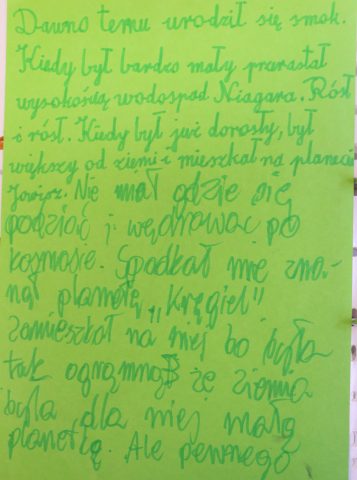 Dawno temu urodził się smok.
Kiedy był bardzo mały przerastał
wysokością wodospad Niagara. Rósł
i rósł. Kiedy był już dorosły, był
większy od ziemi i mieszkał na planecie
Jowisz. Nie miał gdzie się
podziać i wędrować po
kosmosie. Spodkał nie zna-
nął planetę „Kręgiel"
Zamieszkał na niej bo była
tak ogromną że ziemia
była dla niej małą
planetką. Ale pewnego